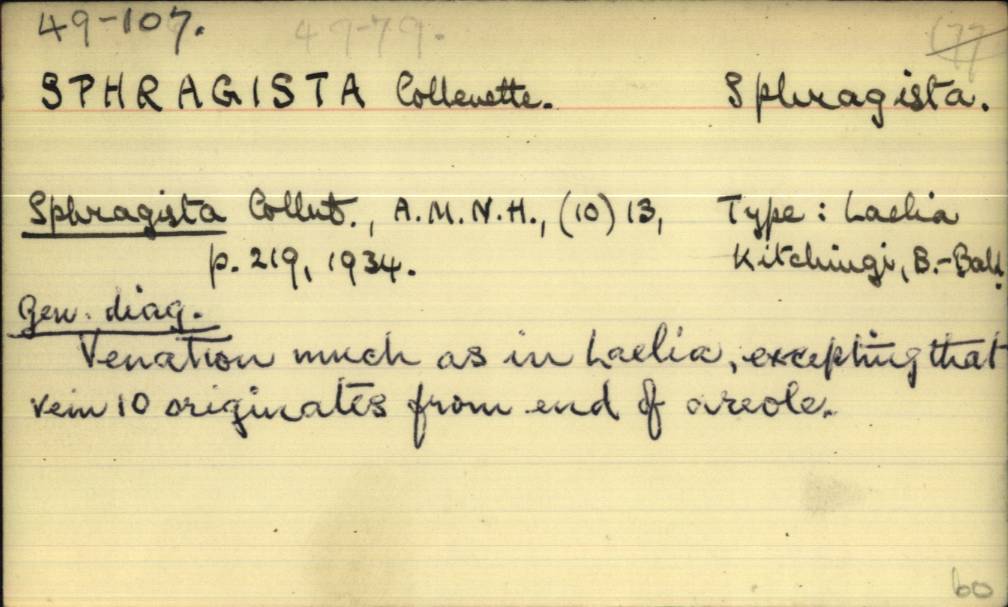 49-107. 49-79. 177
SPHRAGISTA Collenette. Sphragista.
Sphragista Collnt., A.M.N.H., (10) 13, Type: Laelia
p. 219, 1934. Kitchingi, B.-Bak.
Gen. diag.
Venation much as in Laelia, excepting that
vein 10 originates from end of areole.
60